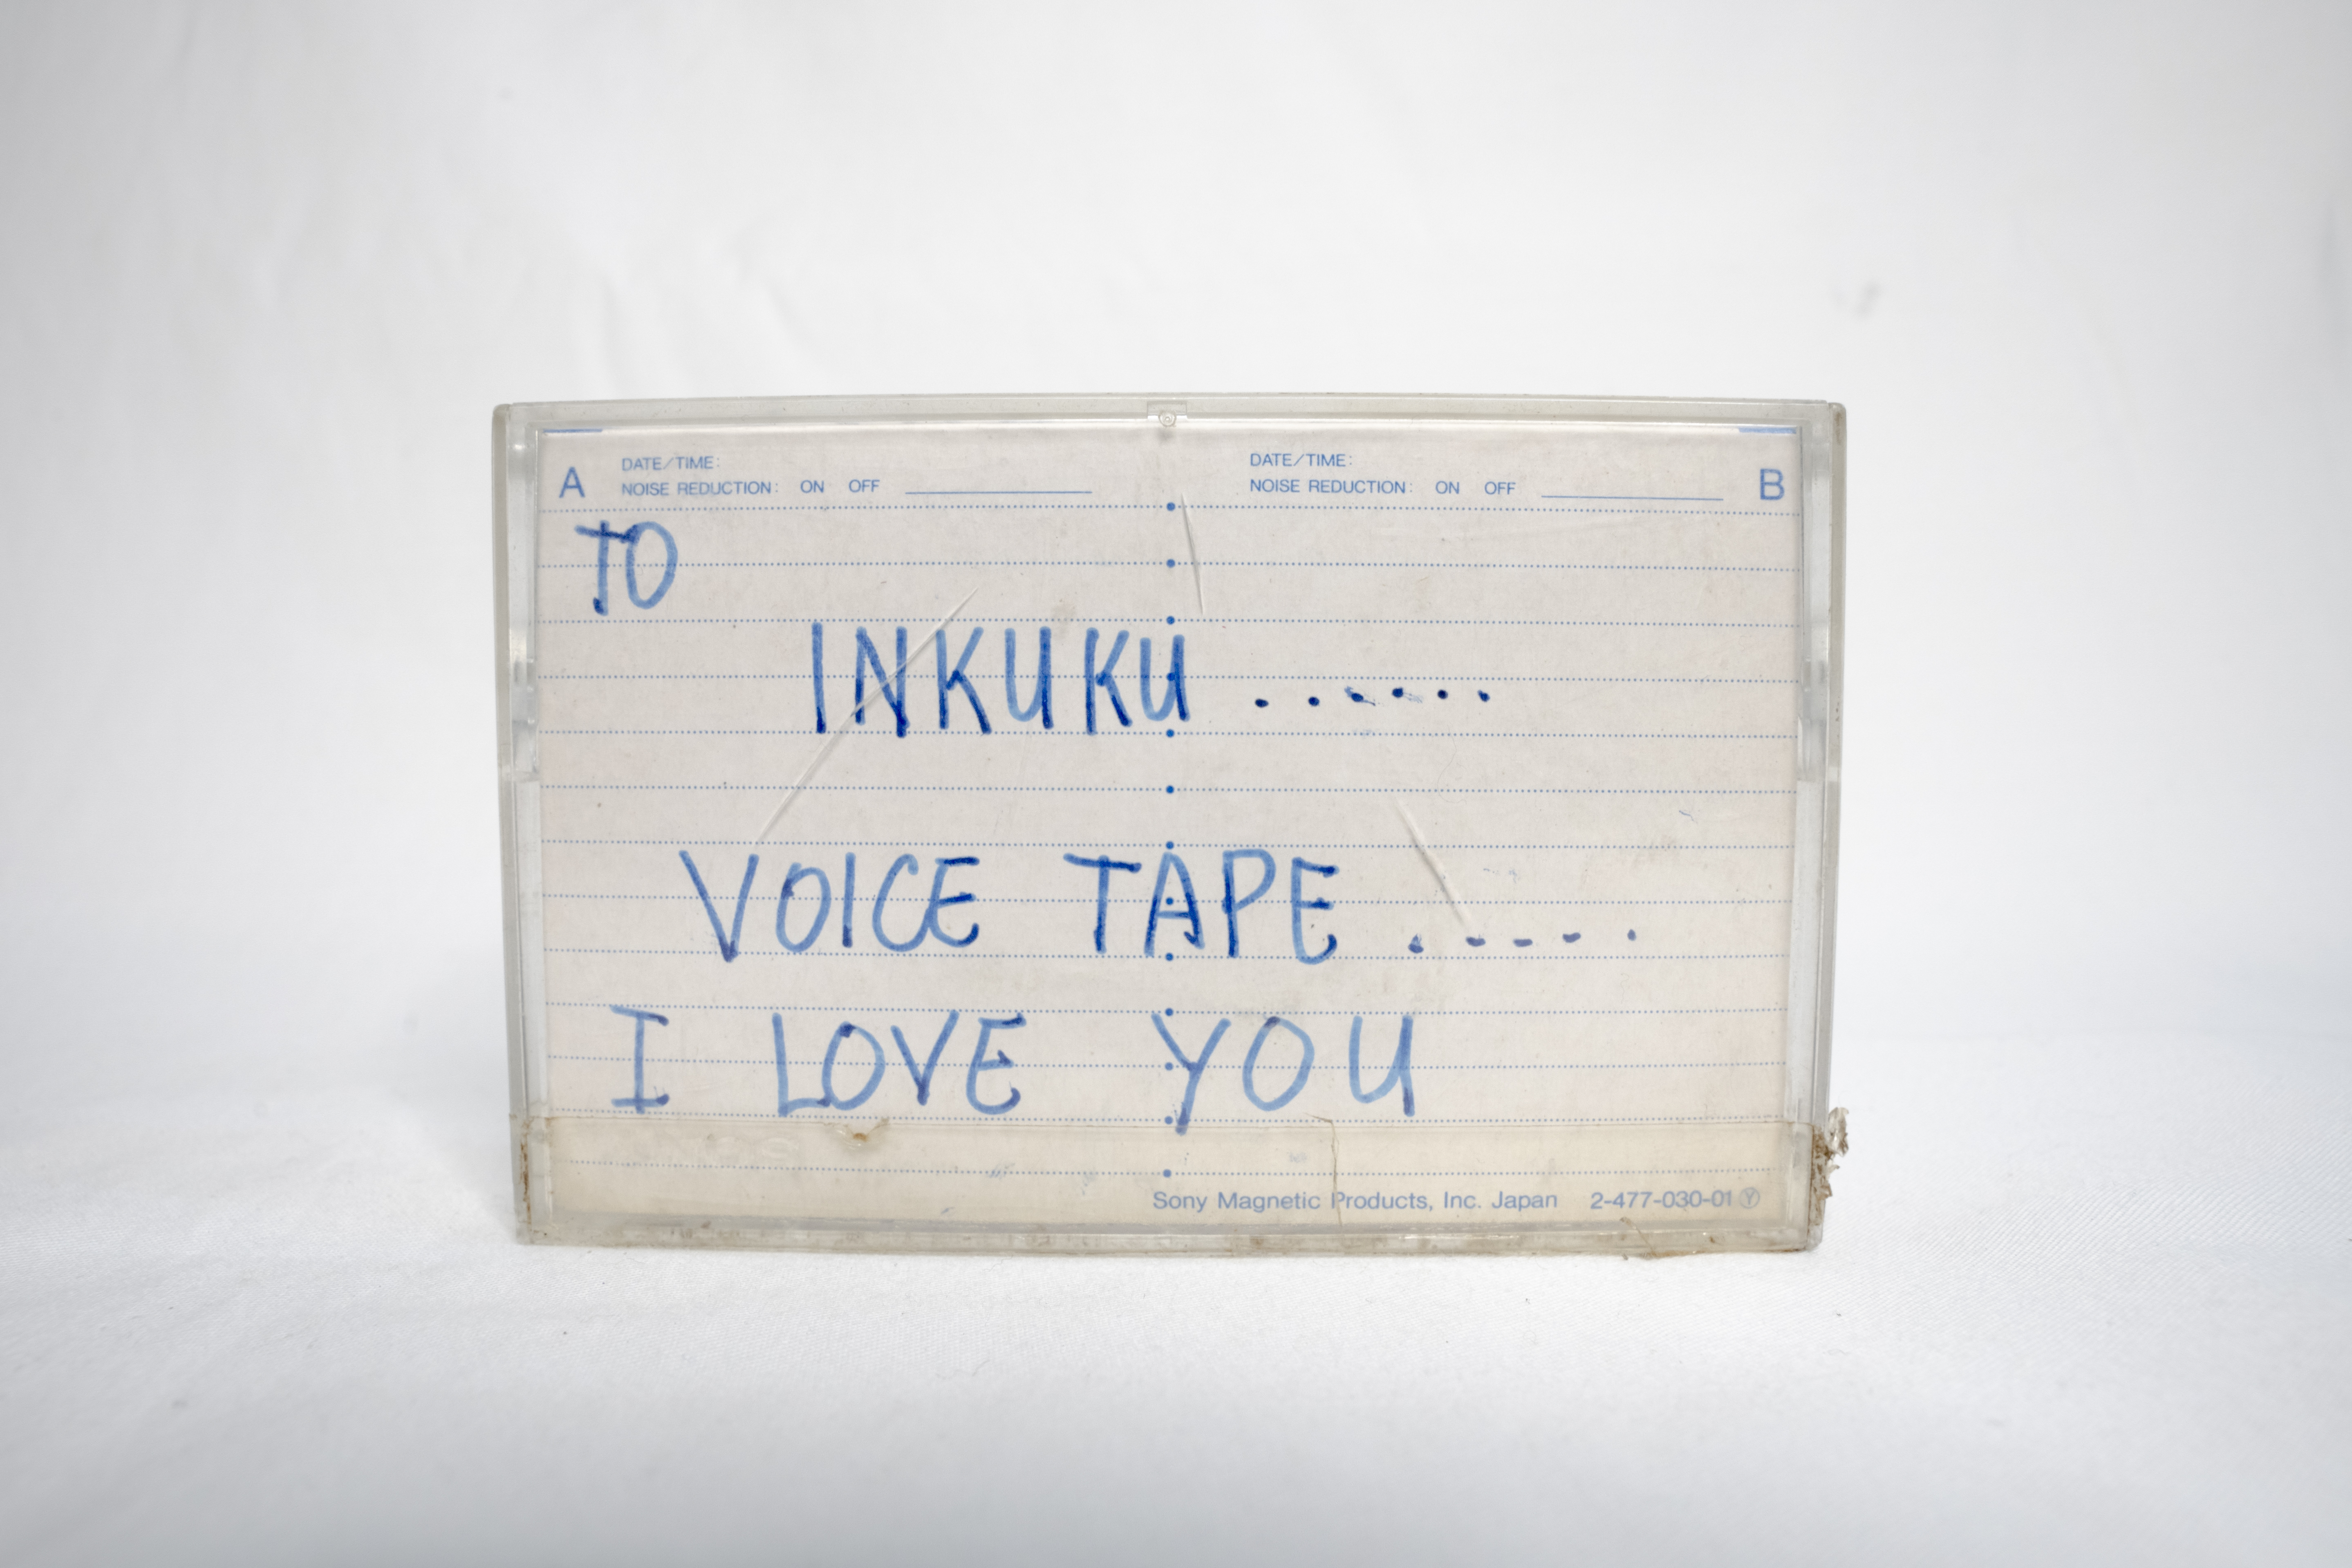 A DATE/TIME: DATE/TIME: B
NOISE REDUCTION: ON OFF NOISE REDUCTION: ON OFF
TO
INKUKU . . . . . .
VOICE TAPE . . . . .
I LOVE YOU
Sony Magnetic Products, Inc. Japan 2-477-030-01 Ⓨ